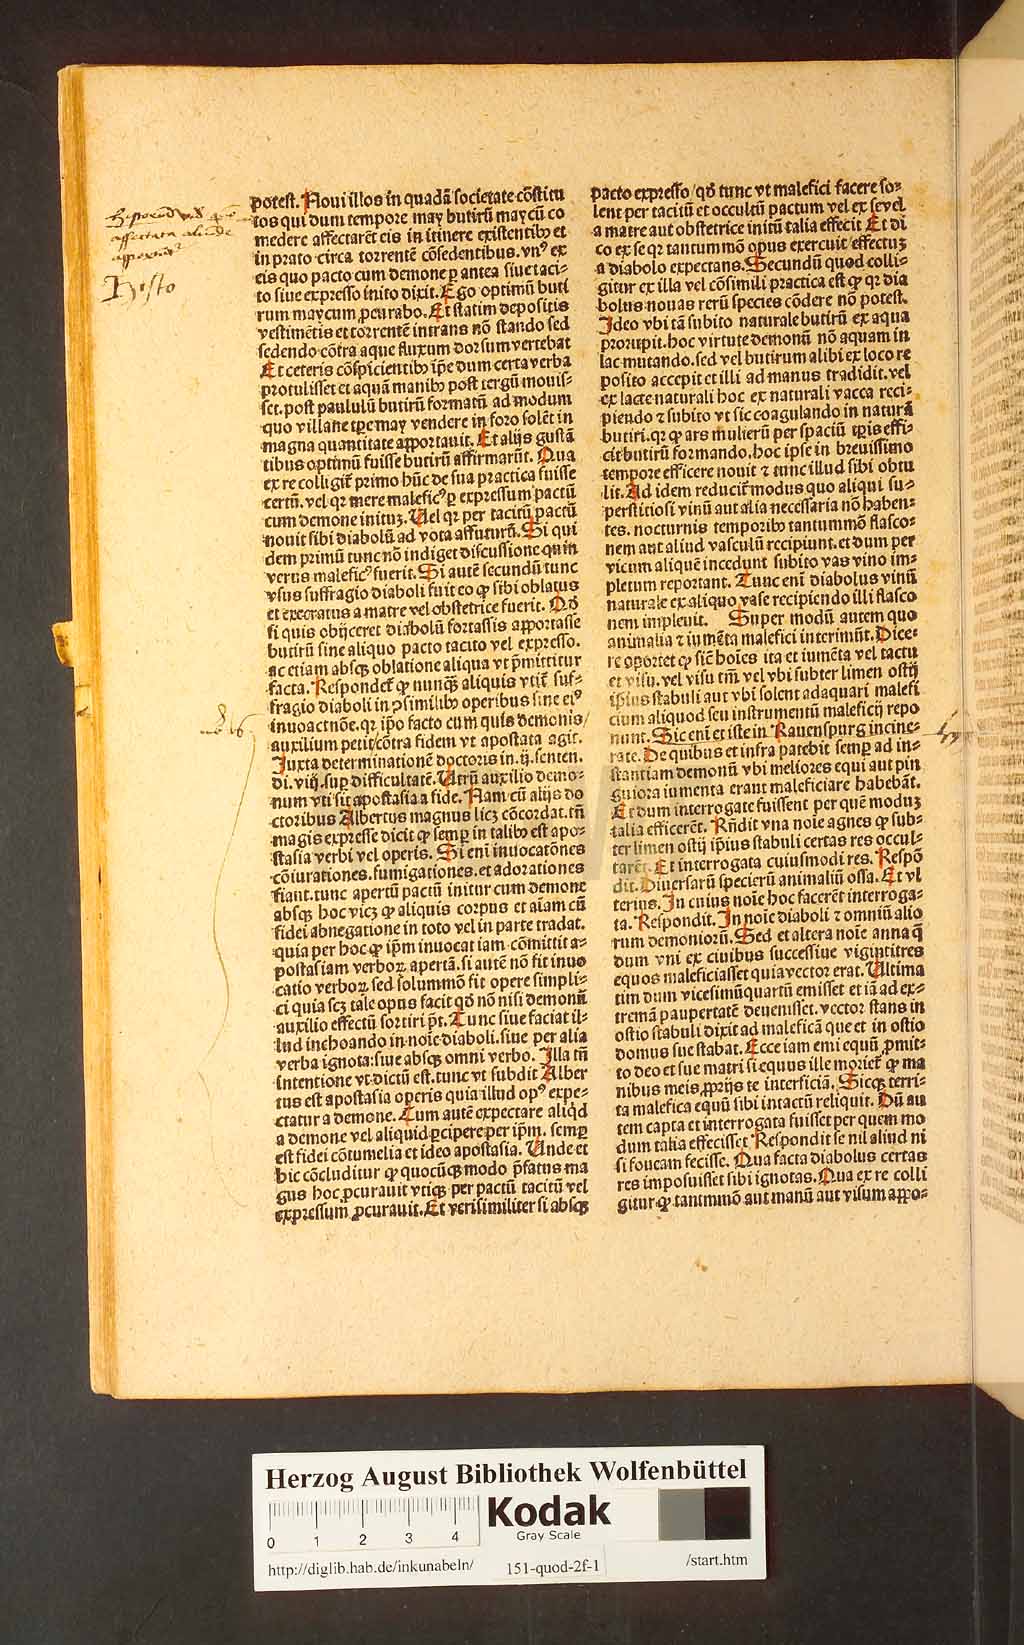 potest. Noui illos in quadã societate cõstitu
tos qui dum tempore may butirũ may cũ co
medere affectarẽt eis in itinere existentibꝰ et
in prato circa torrentẽ cõsedentibus. vnꝰ ex
eis quo pacto cum demone ꝑ antea siue taci-
to siue expresso inito dixit. Ego optimũ buti
rum may cum ꝓcurabo. Et statim depositis
vestimẽtis et torrentẽ intrans nõ stando sed
sedendo cõtra aque fluxum dorsum vertebat
Et ceteris cõspicientibꝰ ip̃e dum certa verba
protulisset et aquã manibꝰ post tergũ mouis-
set. post paululũ butirũ formatũ ad modum
quo villane tꝑe may vendere in foro solẽt in
magna quantitate apportauit. Et alijs gustã
tibus optimũ fuisse butirũ affirmarũt. Qua
ex re colligit̃ primo hũc de sua practica fuisse
certũ. vel qꝛ mere maleficꝰ ꝑ expressum pactũ
cum demone inituꝫ. Uel qꝛ per tacitũ pactũ
nouit sibi diabolũ ad vota affuturũ. Si qui
dem primũ tunc nõ indiget discussione quin
verus maleficꝰ fuerit. Si autẽ secundũ tunc
vsus suffragio diaboli fuit eo ꝙ sibi oblatus
et execratus a matre vel obstetrice fuerit. Qõ
si quis obijceret diabolũ fortassis apportasse
butirũ sine aliquo pacto tacito vel expresso.
ac etiam absqꝫ oblatione aliqua vt p̃mittitur
facta. Respondet̃ ꝙ nunqꝫ̃ aliquis vtit̃ suf-
fragio diaboli in ꝯsimilibꝰ operibus sine eiꝰ
inuocatnõe. qꝛ ip̃o facto cum quis demonis/
auxilium petit/cõtra fidem vt apostata agit.
Iuxta determinationẽ doctoris in .ij. senten.
di. viij. sup difficultatẽ. Utrũ auxilio demo-
num vti sit apostasia a fide. Nam cũ alijs do
ctoribus Albertus magnus licꝫ cõcordat. tñ
magis expresse dicit ꝙ semꝑ in talibꝰ est apo-
stasia verbi vel operis. Si eni inuocatõnes
cõiurationes. fumigationes. et adorationes
fiant. tunc apertũ pactũ initur cum demone
absqꝫ hoc vicꝫ ꝙ aliquis corpus et aĩam cũ
fidei abnegatione in toto vel in parte tradat.
quia per hoc ꝙ ip̃m inuocat iam cõmittit a-
postasiam verboꝝ apertã. si autẽ nõ fit inuo
catio verboꝝ sed solummõ fit opere simpli-
ci quia scꝫ tale opus facit qõ nõ nisi demonũ
auxilio effectũ sortiri p̃t. Tunc siue faciat il-
lud inchoando in noĩe diaboli. siue per alia
verba ignota: siue absqꝫ omni verbo. Illa tñ
intentione vt dictũ est. tunc vt subdit Alber
tus est apostasia operis quia illud opꝰ expe-
ctatur a demone. Cum autẽ expectare aliqd
a demone vel aliquid ꝑcipere per ip̃m. semꝑ
est fidei cõtumelia et ideo apostasia. Unde et
hic cõcluditur ꝙ quocũqꝫ modo p̃fatus ma
gus hoc ꝓcurauit vtiqꝫ per pactũ tacitũ vel
expressum ꝓcurauit. Et verisimiliter si absqꝫ
pacto expresso/qõ tunc vt malefici facere so-
lent per tacitũ et occultũ pactum vel ex se vel
a matre aut obstetrice initũ talia effecit Et di
co ex se qꝛ tantummõ opus exercuit effectuꝫ
a diabolo expectans. Secundũ quod colli-
gitur ex illa vel cõsimili practica est ꝙ qꝛ dia
bolus nouas rerũ species cõdere nõ potest.
Ideo vbi tã subito naturale butirũ ex aqua
prorupit. hoc virtute demonũ nõ aquam in
lac mutando. sed vel butirum alibi ex loco re
posito accepit et illi ad manus tradidit. vel
ex lacte naturali hoc ex naturali vacca reci-
piendo ⁊ subito vt sic coagulando in naturã
butiri. qꝛ ꝙ ars mulierũ per spaciũ tꝑis effi-
cit butirũ formando. hoc ipse in breuissimo
tempore efficere nouit ⁊ tunc illud sibi obtu
lit. Ad idem reducit̃ modus quo aliqui su-
perstitiosi vinũ aut alia necessaria nõ haben-
tes. nocturnis temporibꝰ tantummõ flasco-
nem aut aliud vasculũ recipiunt. et dum per
vicum aliquẽ incedunt subito vas vino im-
pletum reportant. Tunc eni diabolus vinũ
naturale ex aliquo vase recipiendo illi flasco
nem impleuit. Super modũ autem quo
animalia ⁊ iumẽta malefici interimũt. Dice-
re oportet ꝙ sic̃ hoĩes ita et iumẽta vel tactu
et visu. vel visu tm̃ vel vbi subter limen ostij
ip̃ius stabuli aut vbi solent adaquari malefi
cium aliquod seu instrumentũ maleficij repo
nunt. Sic eni et iste in Rauenspurg incine-
rate. De quibus et infra patebit semꝑ ad in-
stantiam demonũ vbi meliores equi aut pin
guiora iumenta erant maleficiare habebãt.
Et dum interrogate fuissent per quẽ moduꝫ
talia efficerẽt. Rñdit vna noĩe agnes ꝙ sub-
ter limen ostij ip̃ius stabuli certas res occul-
tarẽt. Et interrogata cuiusmodi res. Respõ
dit. Diuersarũ specierũ animaliũ ossa. Et vl
terius. In cuius noĩe hoc facerẽt interroga-
ta. Respondit. In noĩe diaboli ⁊ omniũ alio
rum demoniorũ. Sed et altera noĩe anna q̃
dum vni ex ciuibus successiue vigintitres
equos maleficiasset quia vector erat. Ultima
tim dum vicesimũquartũ emisset et iã ad ex-
tremã paupertatẽ deuenisset. vector stans in
ostio stabuli dixit ad maleficã que et in ostio
domus sue stabat. Ecce iam emi equũ ꝓmit-
to deo et sue matri si equus ille moriet̃ ꝙ ma
nibus meis ꝓprijs te interficiã. Sicqꝫ terri-
ta malefica equũ sibi intactũ reliquit. Dũ au
tem capta et interrogata fuisset per quem mo
dum talia effecisset Respondit se nil aliud ni
si foueam fecisse. Qua facta diabolus certas
res imposuisset sibi ignotas. Qua ex re colli
gitur ꝙ tantmmõ aut manũ aut visum appo-
Herzog August Bibliothek Wolfenbüttel
Kodak
Gray Scale
0 1 2 3 4
http://diglib.hab.de/inkunabeln/ 151-quod-2f-1 /start.htm